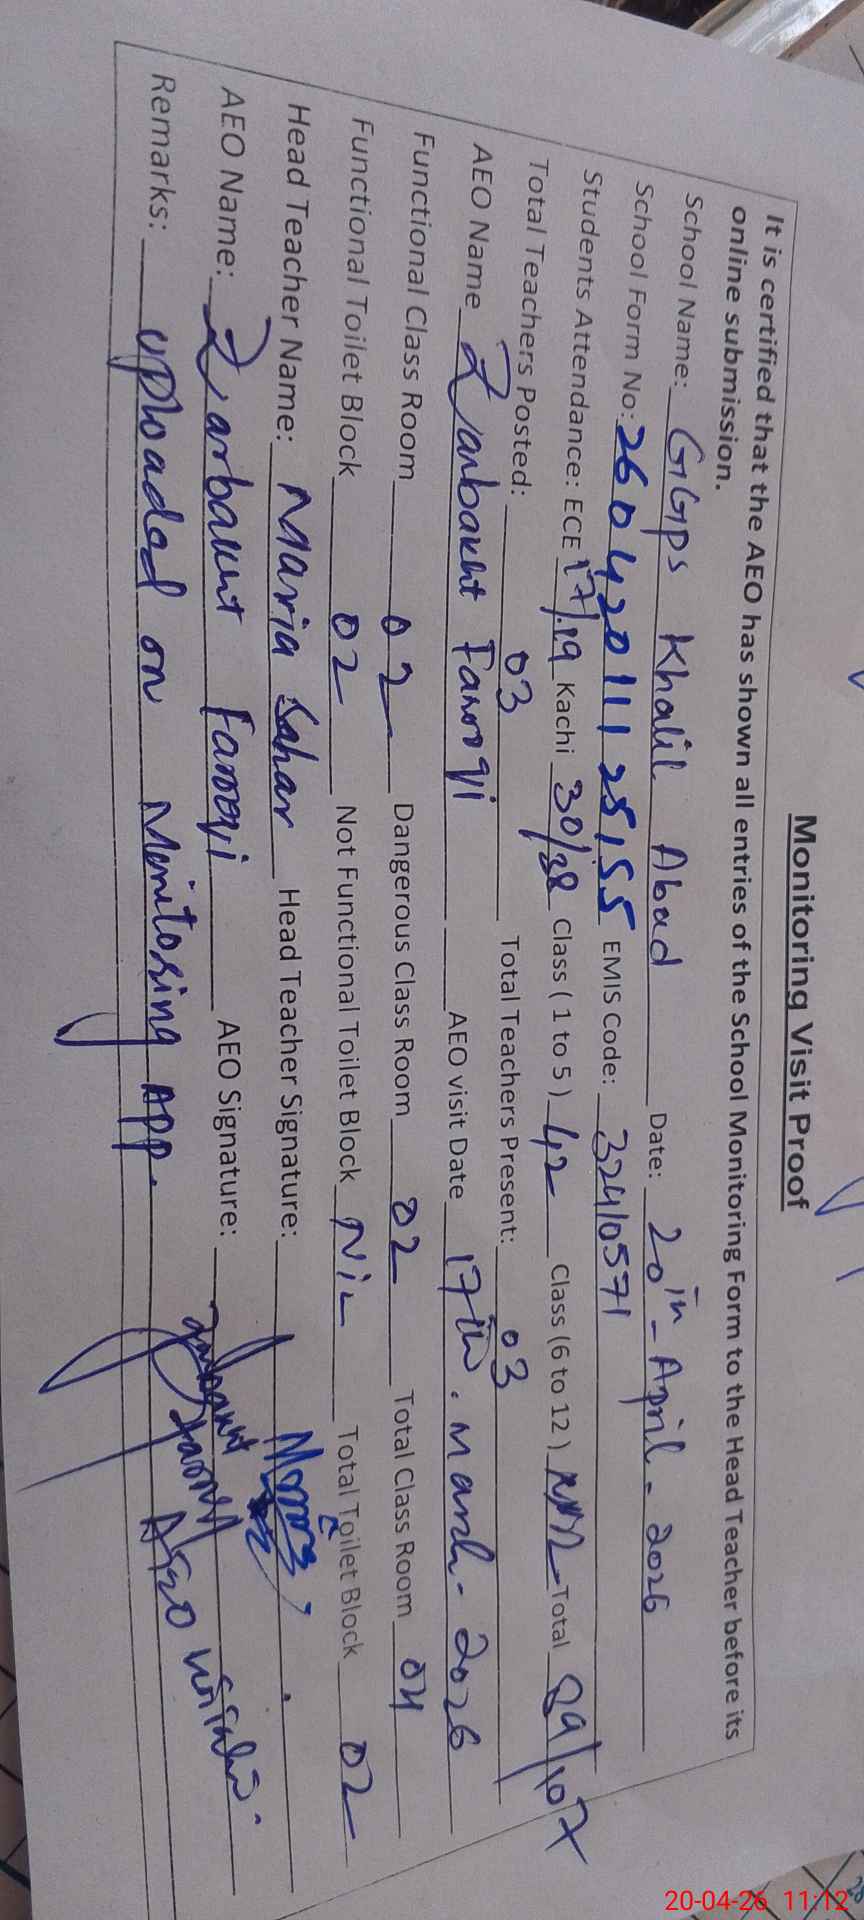 Monitoring Visit Proof
It is certified that the AEO has shown all entries of the School Monitoring Form to the Head Teacher before its
online submission.
School Name: GGPS Khalil Abad Date: 20th - April - 2026
School Form No: 26042011125155 EMIS Code: 32410571
Students Attendance: ECE 17/19 Kachi 30/38 Class ( 1 to 5 ) 42 Class (6 to 12 ) Total 89/107
Total Teachers Posted: 03 Total Teachers Present: 03
AEO Name Zarbakht Farooqi AEO visit Date 17th. March - 2026
Functional Class Room 02 Dangerous Class Room 02 Total Class Room 04
Functional Toilet Block 02 Not Functional Toilet Block Nil Total Toilet Block 02
Head Teacher Name: Maria Sahar Head Teacher Signature:
AEO Name: Zarbakht Farooqi AEO Signature:
Remarks: uploaded on Monitoring App.
20-04-26 11:12